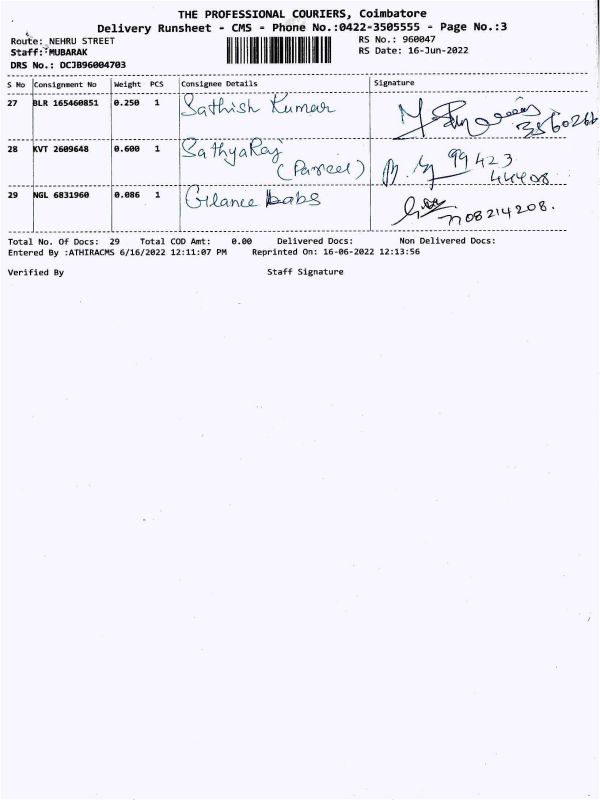 THE PROFESSIONAL COURIERS, Coimbatore
Delivery Runsheet - CMS - Phone No.:0422-3505555 - Page No.:3
Route: NEHRU STREET
RS No.: 960047
Staff: MUBARAK
RS Date: 16-Jun-2022
DRS No.: DCJB96004703
S No Consignment No Weight PCS Consignee Details Signature
27 BLR 165460851 0.250 1 Sathish Kumar
28 KVT 2609648 0.600 1 SathyaRaj 99423
(Parcel) 44408
29 NGL 6831960 0.086 1 Labs
7708214208.
Total No. Of Docs: 29 Total COD Amt: 0.00 Delivered Docs: Non Delivered Docs:
Entered By :ATHIRACMS 6/16/2022 12:11:07 PM Reprinted On: 16-06-2022 12:13:56
Verified By Staff Signature